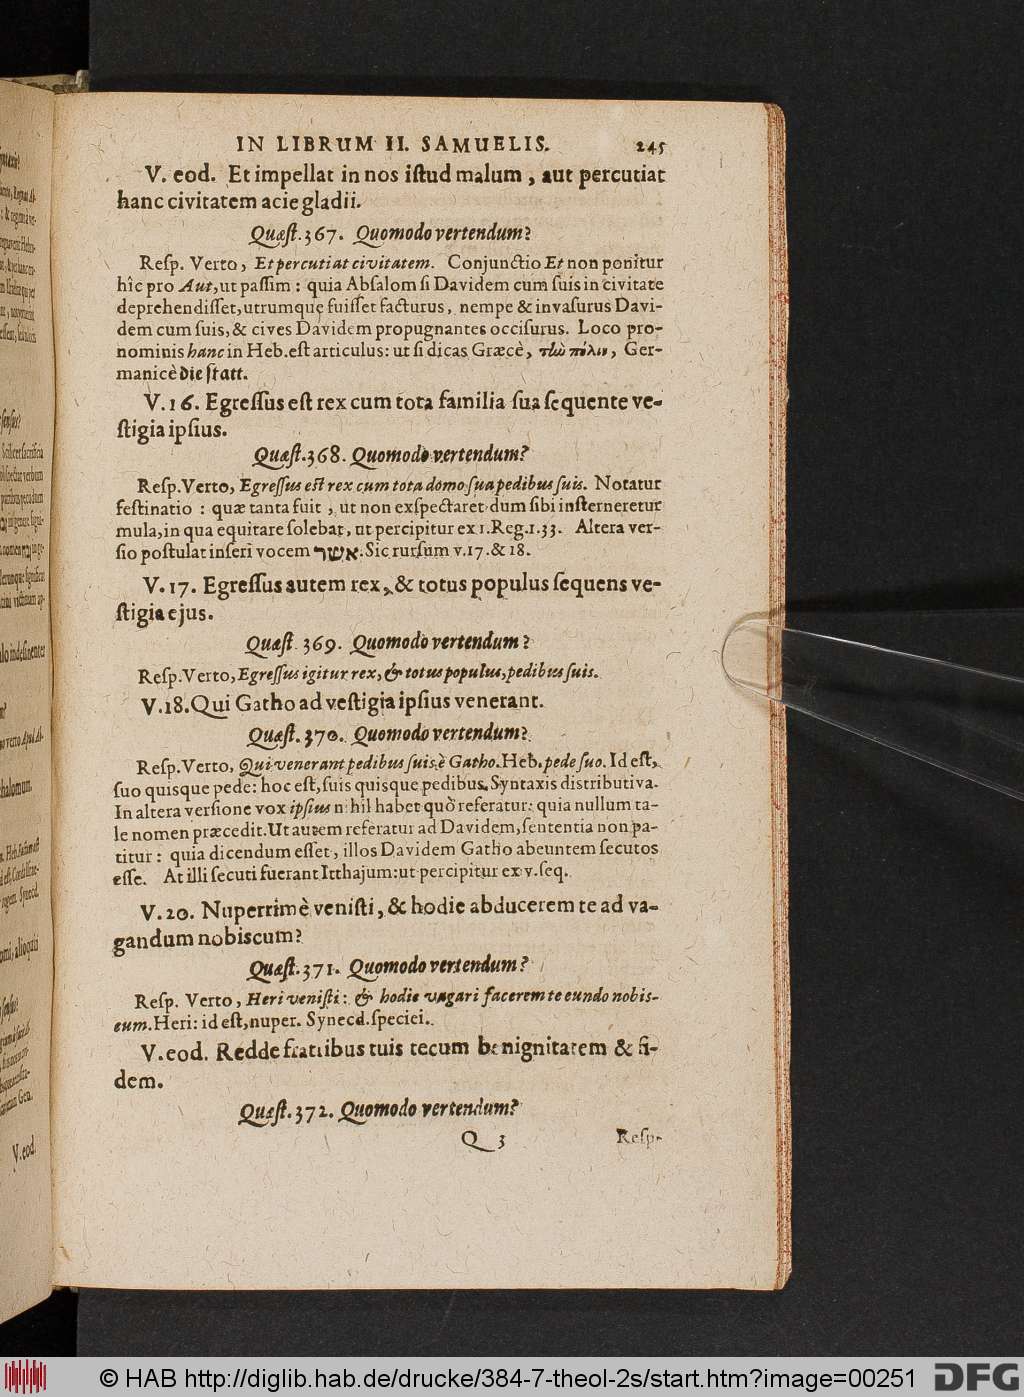 IN LIBRUM II. SAMUELIS. 245
V. eod. Et impellat in nos iſtud malum, aut percutiat
hanc civitatem acie gladii.
Quæſt. 367. Quomodo vertendum?
Reſp. Verto, Et percutiat civitatem. Conjunctio Et non ponitur
hîc pro Aut, ut paſſim: quia Abſalom ſi Davidem cum ſuis in civitate
deprehendiſſet, utrumque fuiſſet facturus, nempe & invaſurus Davi-
dem cum ſuis, & cives Davidem propugnantes occiſurus. Loco pro-
nominis hanc in Heb. eſt articulus: ut ſi dicas Græcè, τὼ πόλιν, Ger-
manicè die ſtatt.
V. 16. Egreſſus eſt rex cum tota familia ſua ſequente ve-
ſtigia ipſius.
Quæſt. 368. Quomodo vertendum?
Reſp. Verto, Egreſſus eſt rex cum tota domo ſua pedibus ſuis. Notatur
feſtinatio: quæ tanta fuit, ut non exſpectaret dum ſibi inſterneretur
mula, in qua equitare ſolebat, ut percipitur ex 1. Reg. 1. 33. Altera ver-
ſio poſtulat inſeri vocem אשר. Sic rurſum v. 17. & 18.
V. 17. Egreſſus autem rex, & totus populus ſequens ve-
ſtigia ejus.
Quæſt. 369. Quomodo vertendum?
Reſp. Verto, Egreſſus igitur rex, & totus populus, pedibus ſuis.
V. 18. Qui Gatho ad veſtigia ipſius venerant.
Quæſt. 370. Quomodo vertendum?
Reſp. Verto, Qui venerant pedibus ſuis è Gatho. Heb. pede ſuo. Id eſt,
ſuo quisque pede: hoc eſt, ſuis quisque pedibus. Syntaxis distributiva.
In altera verſione vox ipſius nihil habet quò referatur: quia nullum ta-
le nomen præcedit. Ut autem referatur ad Davidem, ſententia non pa-
titur: quia dicendum eſſet, illos Davidem Gatho abeuntem ſecutos
eſſe. At illi ſecuti fuerant Itthajum: ut percipitur ex v. ſeq.
V. 20. Nuperrimè veniſti, & hodie abducerem te ad va-
gandum nobiscum?
Quæſt. 371. Quomodo vertendum?
Reſp. Verto, Heri veniſti: & hodie vagari facerem te eundo nobis-
cum. Heri: id eſt, nuper. Synecd. ſpeciei.
V. eod. Redde fratribus tuis tecum benignitatem & fi-
dem.
Quæſt. 372. Quomodo vertendum?
Q 3 Reſp.
© HAB http://diglib.hab.de/drucke/384-7-theol-2s/start.htm?image=00251 DFG